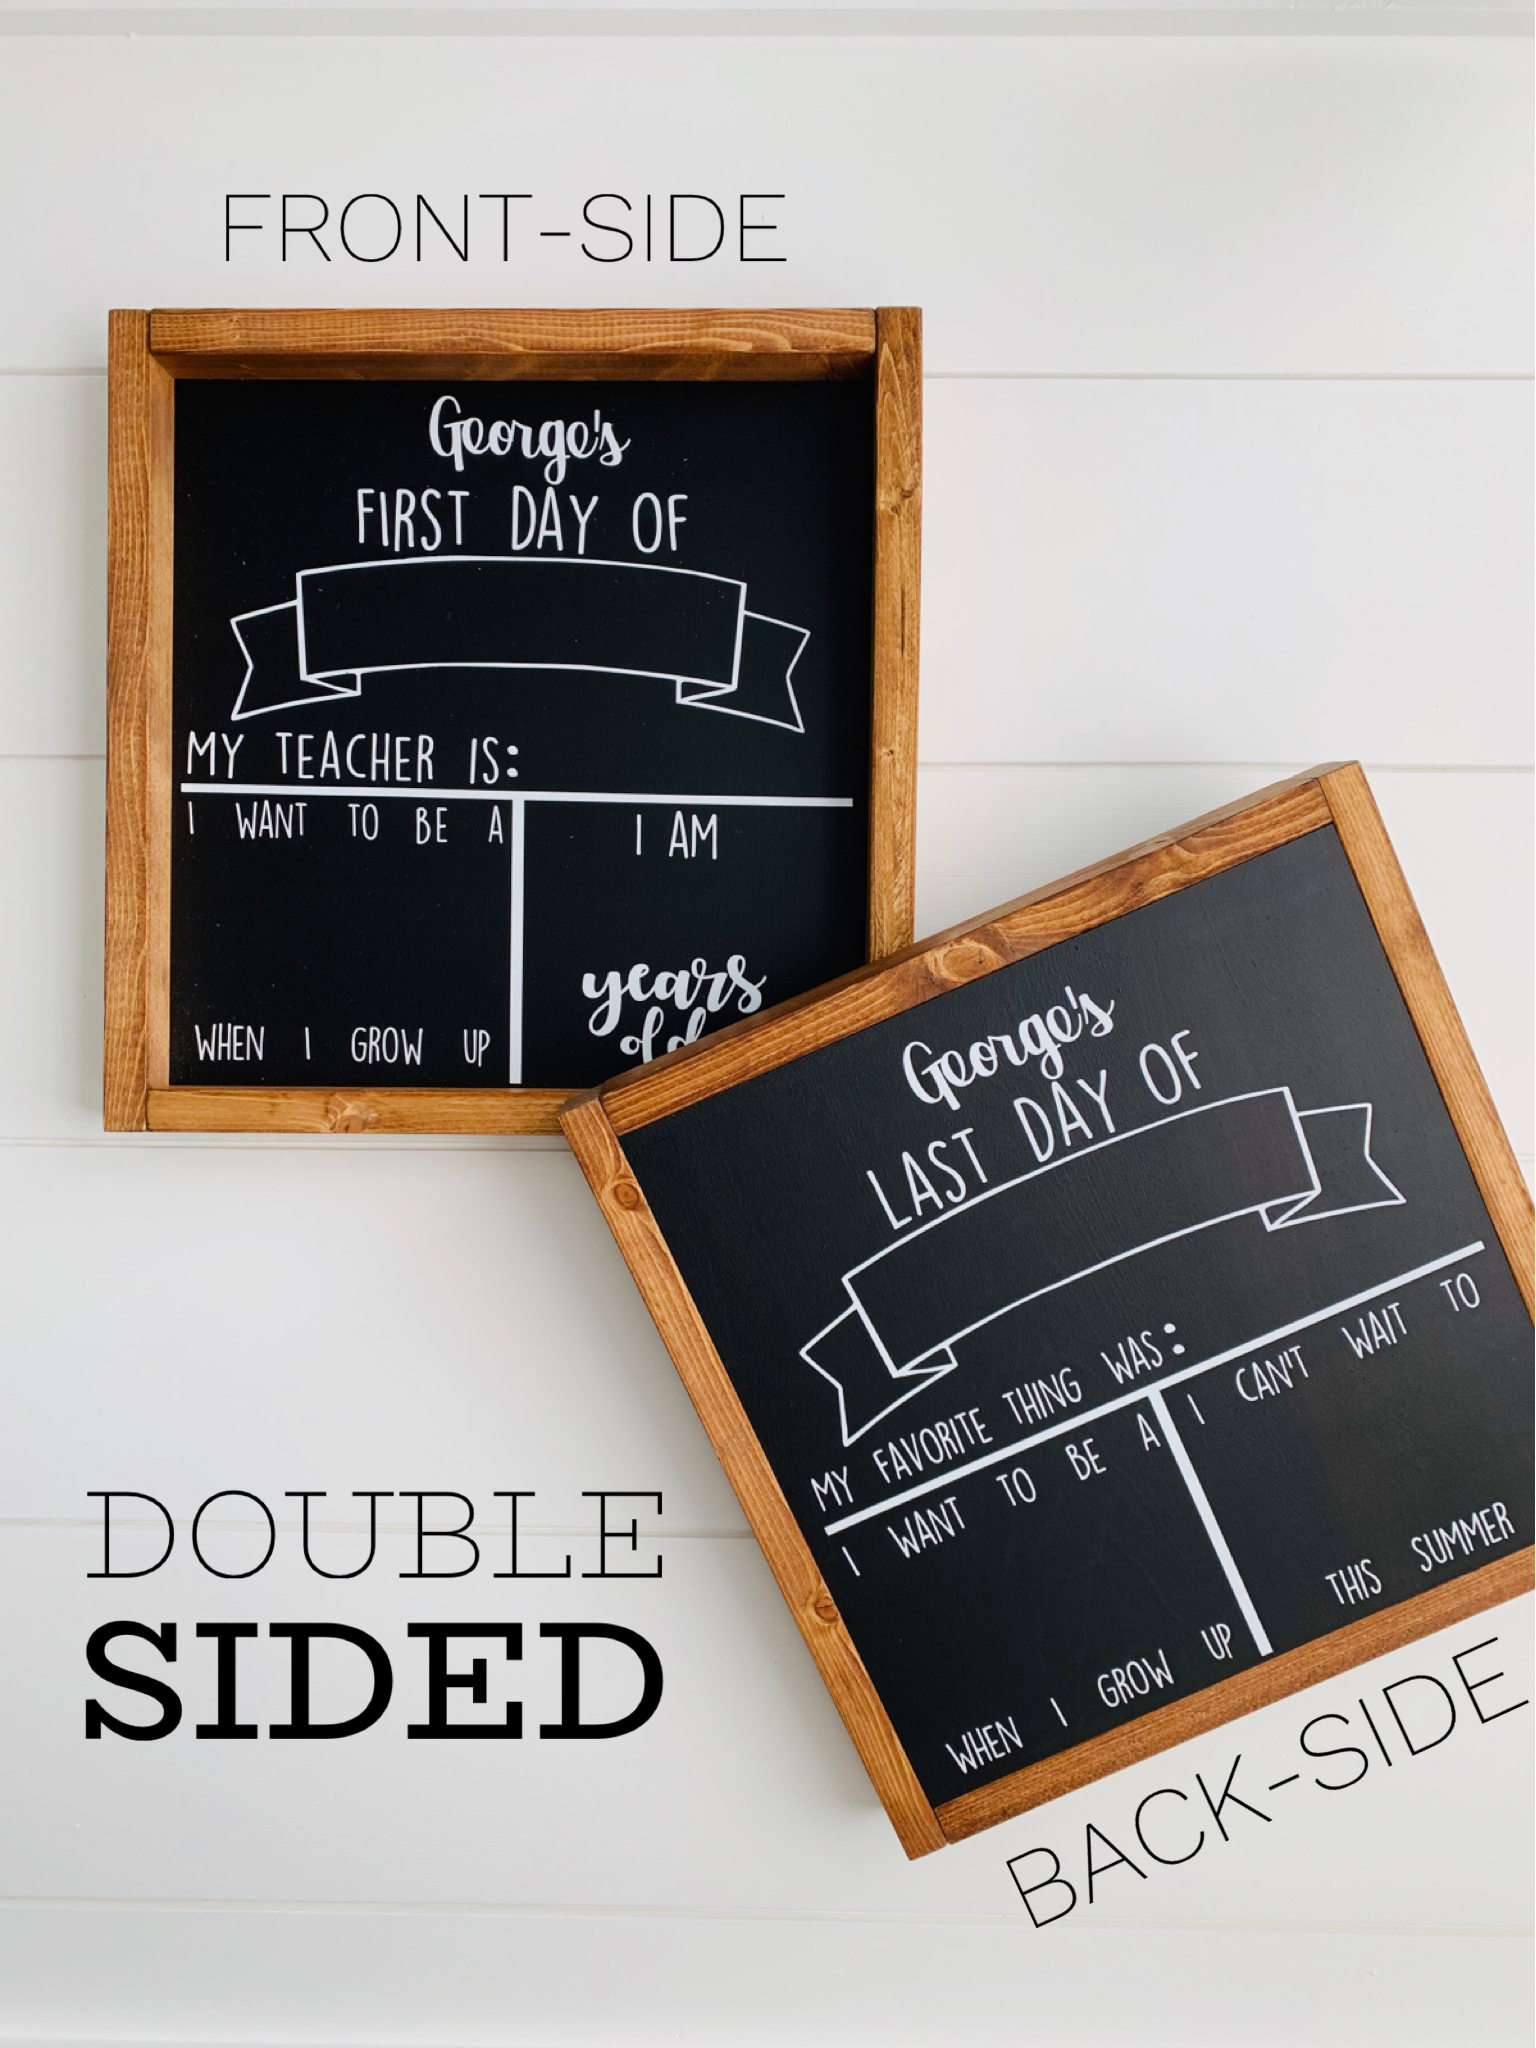 FRONT-SIDE
George's
FIRST DAY OF
MY TEACHER IS:
I WANT TO BE A
WHEN I GROW UP
I AM
years
old
George's
LAST DAY OF
MY FAVORITE THING WAS:
I WANT TO BE A
WHEN I GROW UP
I CAN'T WAIT TO
THIS SUMMER
BACK-SIDE
DOUBLE
SIDED